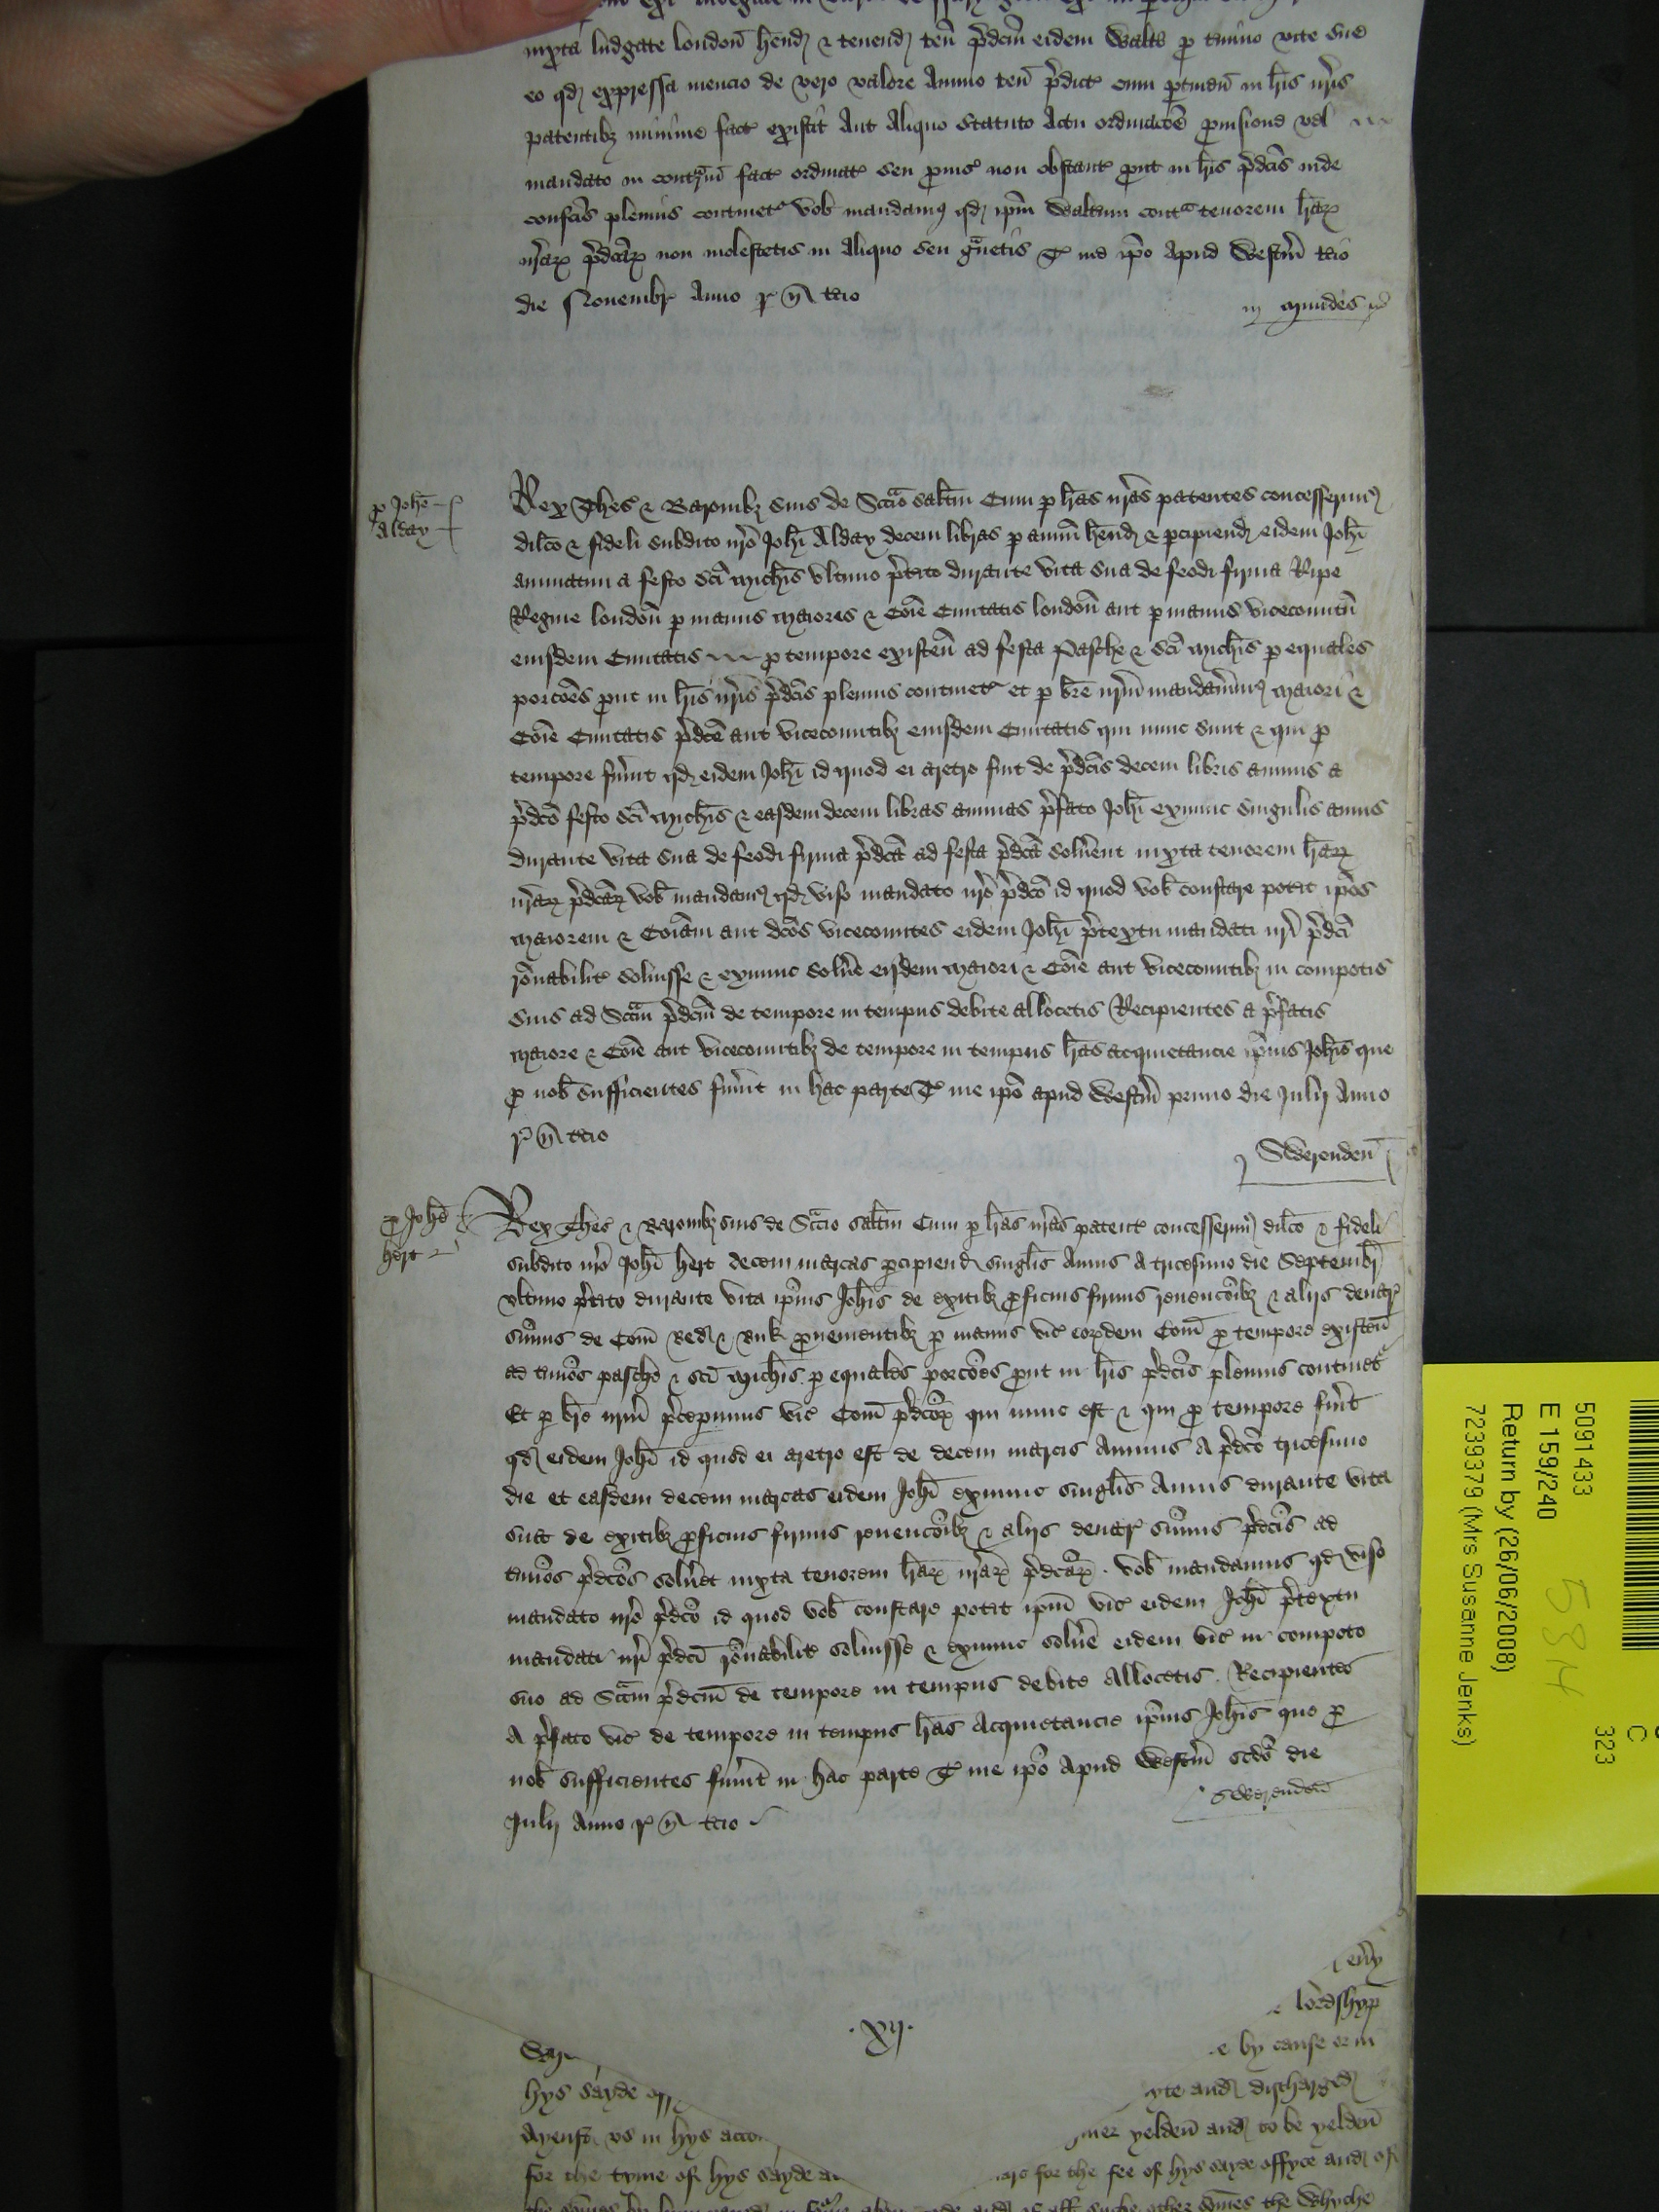 iuxta ludgate london̄ hend & tenend ten̄ p̄dcm̄ eidem Walto p tmino vite sue
eo qd expressa mencio de vero valore Annuo ten̄ p̄dict cum ptinen̄ in lr̄is nr̄is
patentibz minime fact existit Aut Aliquo Statuto Actu ordinacōe pvisione vel
mandato in contr̄m fact ordinat seu pvis non obstant put in lr̄is p̄dcīs inde
confcīs plenius continet vob mandam9 qd ip̄m Waltum cont tenorem lr̄ar
nr̄ar p̄dcār non molestetis in Aliquo seu gravetis T me ip̄o Apud Westm̄ tcio
die Novembr Anno r n̄ tcio
p Johe
Alday
Rex Thes & Baronibz suis de Sccīo saltm̄ Cum p lr̄as nr̄as patentes concesserim9
dilcō & fideli subdito nr̄o Joh̄i Alday decem libras p annū hend & pcipiend eidem Joh̄i
annuatim a festo sc̄i Mich̄is ultimo p̄tito durante vita sua de feodi firma Ripe
Regine london̄ p manus Maiores & Cōie Civitatis london̄ aut p manus vicecomitū
eiusdem Civitatis p tempore existen̄ ad festa Pasche & sc̄i Mich̄is p equales
porcōes put in lr̄is nr̄is p̄dcīs plenius continet et p br̄e nr̄m mandav̄im9 Maiori &
Cōie Civitatis p̄dcē aut vicecomitibz eiusdem Civitatis qui nunc sunt & qui p
tempore fu͛int qd eidem Joh̄i id quod ei aretro fuit de p̄dcīs decem libris annuis a
p̄dcō festo sc̄i Mich̄is & easdem decem libras annuas p̄fato Joh̄i exnunc singulis annis
durante vita sua de feodi firma p̄dcā ad festa p̄dcā solv̄ent iuxta tenorem lr̄ar
nr̄ar p̄dcār vob mandam9 qd viso mandato nr̄o p̄dcō id quod vob constare potit ip̄os
Maiorem & Cōiam aut dcōs vicecomites eidem Joh̄i p̄textu mandati nr̄i p̄dcī
rōnabilit solvisse & exnunc solv̄e eisdem Maiori & Cōie aut vicecomitibz in compotis
suis ad Sccm̄ p̄dcm̄ de tempore in tempus debite allocetis Recipientes a p̄fatis
Maiore & Cōie aut vicecomitibz de tempore in tempus lr̄as acquietancie ip̄ius Joh̄is que
p nob sufficientes fu͛int in hac parte T me ip̄o apud Westm̄ primo die Julij Anno
r n̄ tcio
Swerenden̄
p Johe
hert
Rex Thes & Baronibz suis de Sccīo saltm̄ Cum p lr̄as nr̄as patent concesserim9 dilcō & fideli
subdito nr̄o Joh̄i hert decem marcas pcipiend singlis Annis A tricesimo die Septembr
ultimo p̄tito durante vita ip̄ius Joh̄is de exitibz pficuis firmis revencōibz & alijs denar
sum̄is de Com̄ Bed & Buk pvenientibz p manus vic eordem Com̄ p tempore existen̄
ad tmīos pasche & sc̄i Mich̄is p equales porcōes put in lr̄is p̄dcīs plenius continet
Et p br̄e nr̄m p̄cepimus vic Com̄ p̄dcōr qui nunc est & qui p tempore fu͛it
qd eidem Joh̄i id quod ei aretro est de decem marcis Annuis A p̄dcō tricesimo
die et easdem decem marcas eidem Joh̄i exnunc singlis Annis durante vita
sua de exitibz pficuis firmis revencōibz & alijs denar sum̄is p̄dcīs ad
tmīos p̄dcōs solv̄et iuxta tenorem lr̄ar nr̄ar p̄dcār . vob mandamus qd viso
mandato nr̄o p̄dcō id quod vob constare potit ip̄m vic eidem Joh̄i p̄textu
mandati nr̄i p̄dcī rōnabilit solvisse & exnunc solv̄e eidem vic in compoto
suo ad Sccm̄ p̄dcm̄ de tempore in tempus debite Allocetis . Recipientes
A p̄fato vic de tempore in tempus lr̄as Acquietancie ip̄ius Joh̄is que p
nob sufficientes fu͛int in hac parte T me ip̄o Apud Westm̄ scdo die
Julij Anno r n̄ tcio
Swerenden̄
. xij .
lordshyp
by cause
hys sayde
yte and discharged
Ayenst vs in hys
yelden̄ and to be yelden̄
for the tyme of hys sayde
for the fee of hys sayde offyce and of
the Whyche
5091433
E 159/240
Return by (26/06/2008)
7239379 (Mrs Susanne Jenks)
5314
C
323